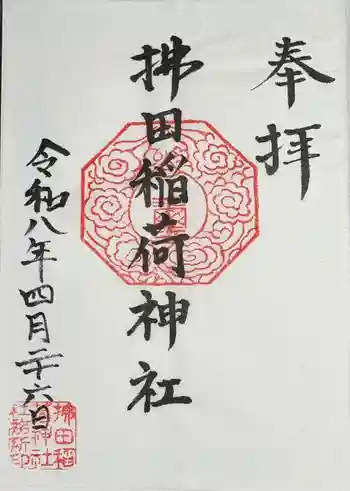 奉拝
拂田稲荷神社
令和八年四月二十六日
拂田稲荷神社社務所印